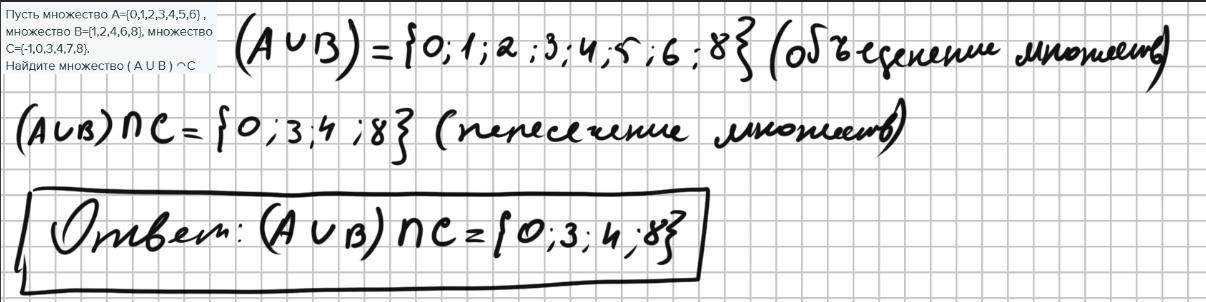 Пусть множество A={0,1,2,3,4,5,6} ,
множество B={1,2,4,6,8}, множество
C={-1,0,3,4,7,8}.
Найдите множество ( A U B ) ⌒C
(A∪B)={0;1;2;3;4;5;6;8} (объеденение множеств)
(A∪B)∩C={0;3;4;8} (пересечение множеств)
Ответ: (A∪B)∩C={0;3;4;8}